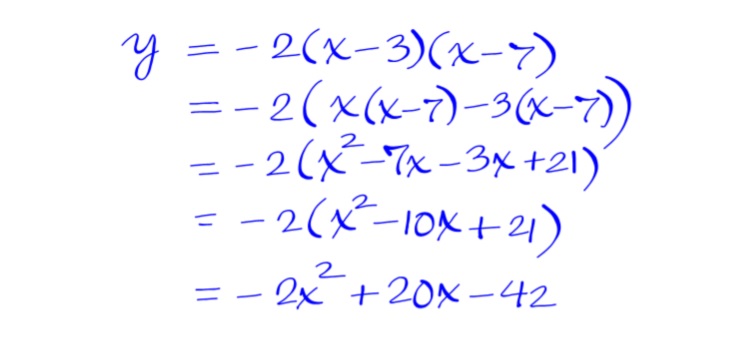 y = -2(x-3)(x-7)
= -2(x(x-7)-3(x-7))
= -2(x²-7x-3x+21)
= -2(x²-10x+21)
= -2x²+20x-42